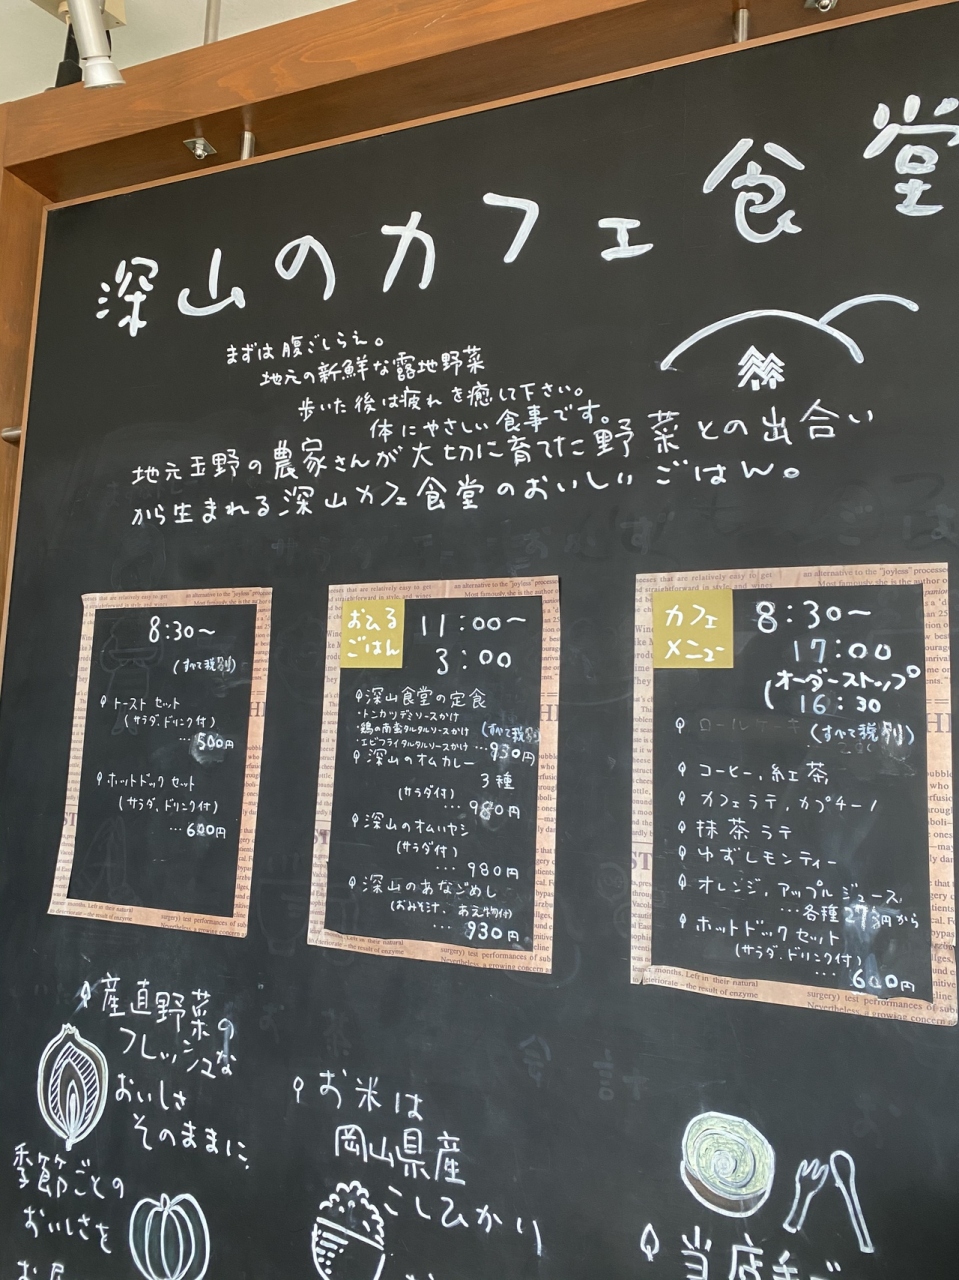 深山のカフェ食堂
まずは腹ごしらえ。
地元の新鮮な露地野菜
歩いた後は疲れを癒して下さい。
体にやさしい食事です。
地元玉野の農家さんが大切に育てた野菜との出合い
から生まれる深山カフェ食堂のおいしいごはん。
8:30〜
(すべて税別)
トーストセット
(サラダ、ドリンク付)
…500円
ホットドックセット
(サラダ、ドリンク付)
…600円
おひる
ごはん
11:00〜
3:00
深山食堂の定食
・トンカツデミソースかけ
・鶏の南蛮タルタルソースかけ
・エビフライタルタルソースかけ
(すべて税別)
…930円
深山のオムカレー
3種
(サラダ付)
…980円
深山のオムハヤシ
(サラダ付)
…980円
深山のあなごめし
(おみそ汁、あえ物付)
…930円
カフェ
メニュー
8:30〜
17:00
オーダーストップ
(16:30
ロールケーキ
(すべて税別)
コーヒー、紅茶
カフェラテ、カプチーノ
抹茶ラテ
ゆずレモンティー
オレンジ、アップルジュース
…各種273円から
ホットドックセット
(サラダ、ドリンク付)
…600円
産直野菜の
フレッシュな
おいしさ
そのままに、
季節ごとの
おいしさを
お米は
岡山県産
こしひかり
当店手づ